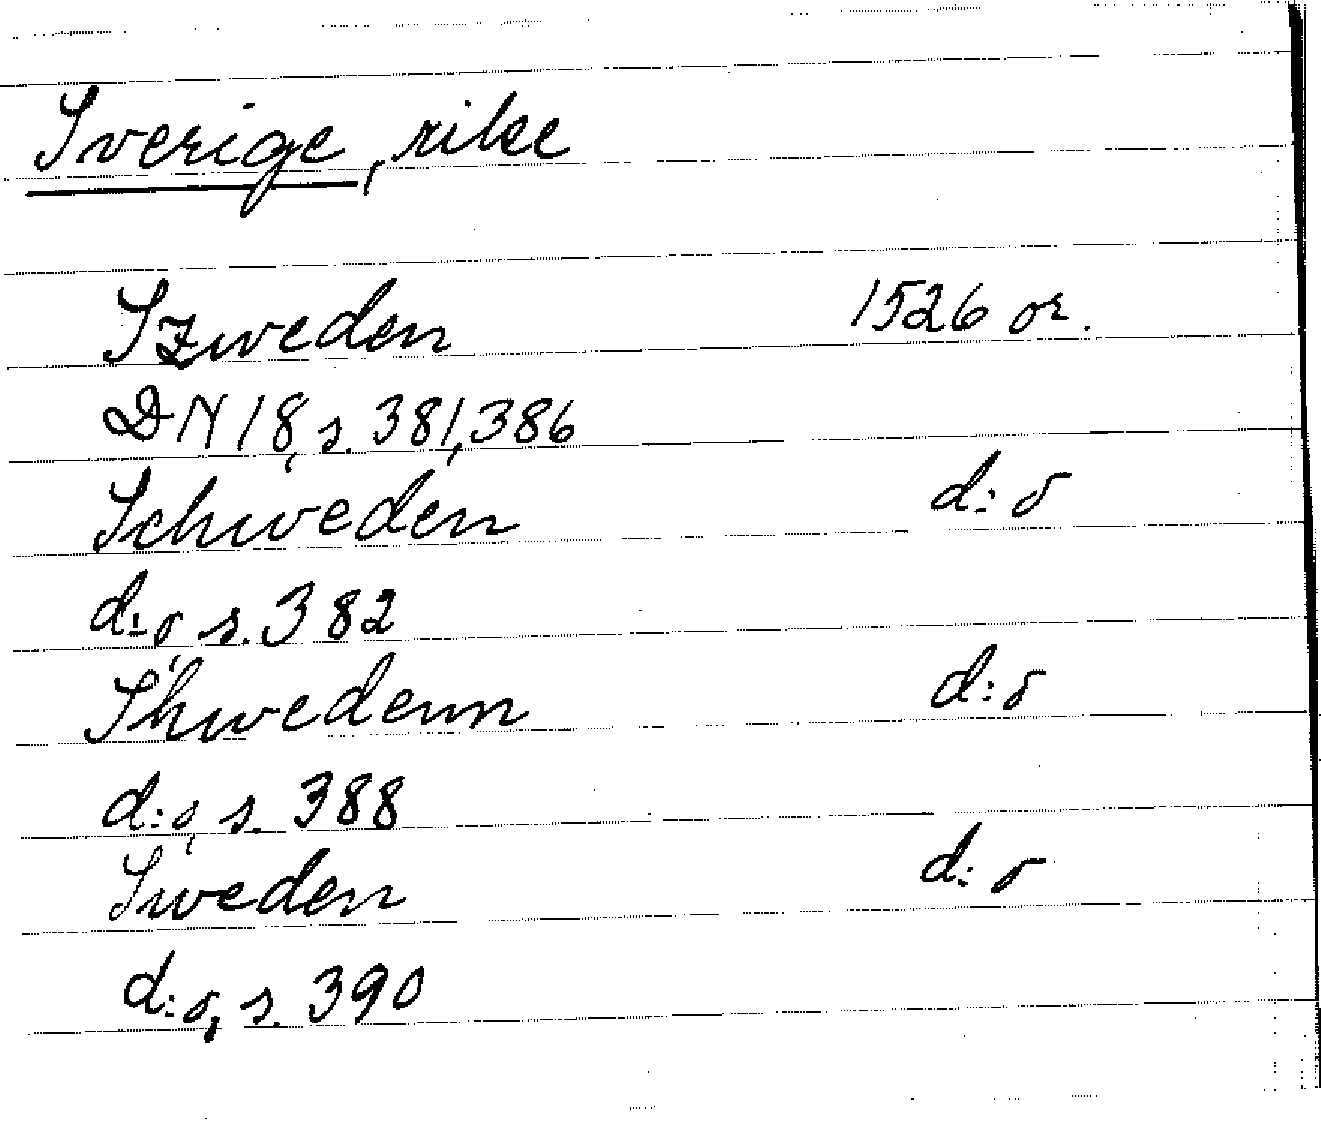 Sverige, rike
Szweden 1526 or.
DN 18, s. 381, 386
Schweden d:o
d:o, s. 382
Shwedenn d:o
d:o, s. 388
Sweden d:o
d:o, s. 390